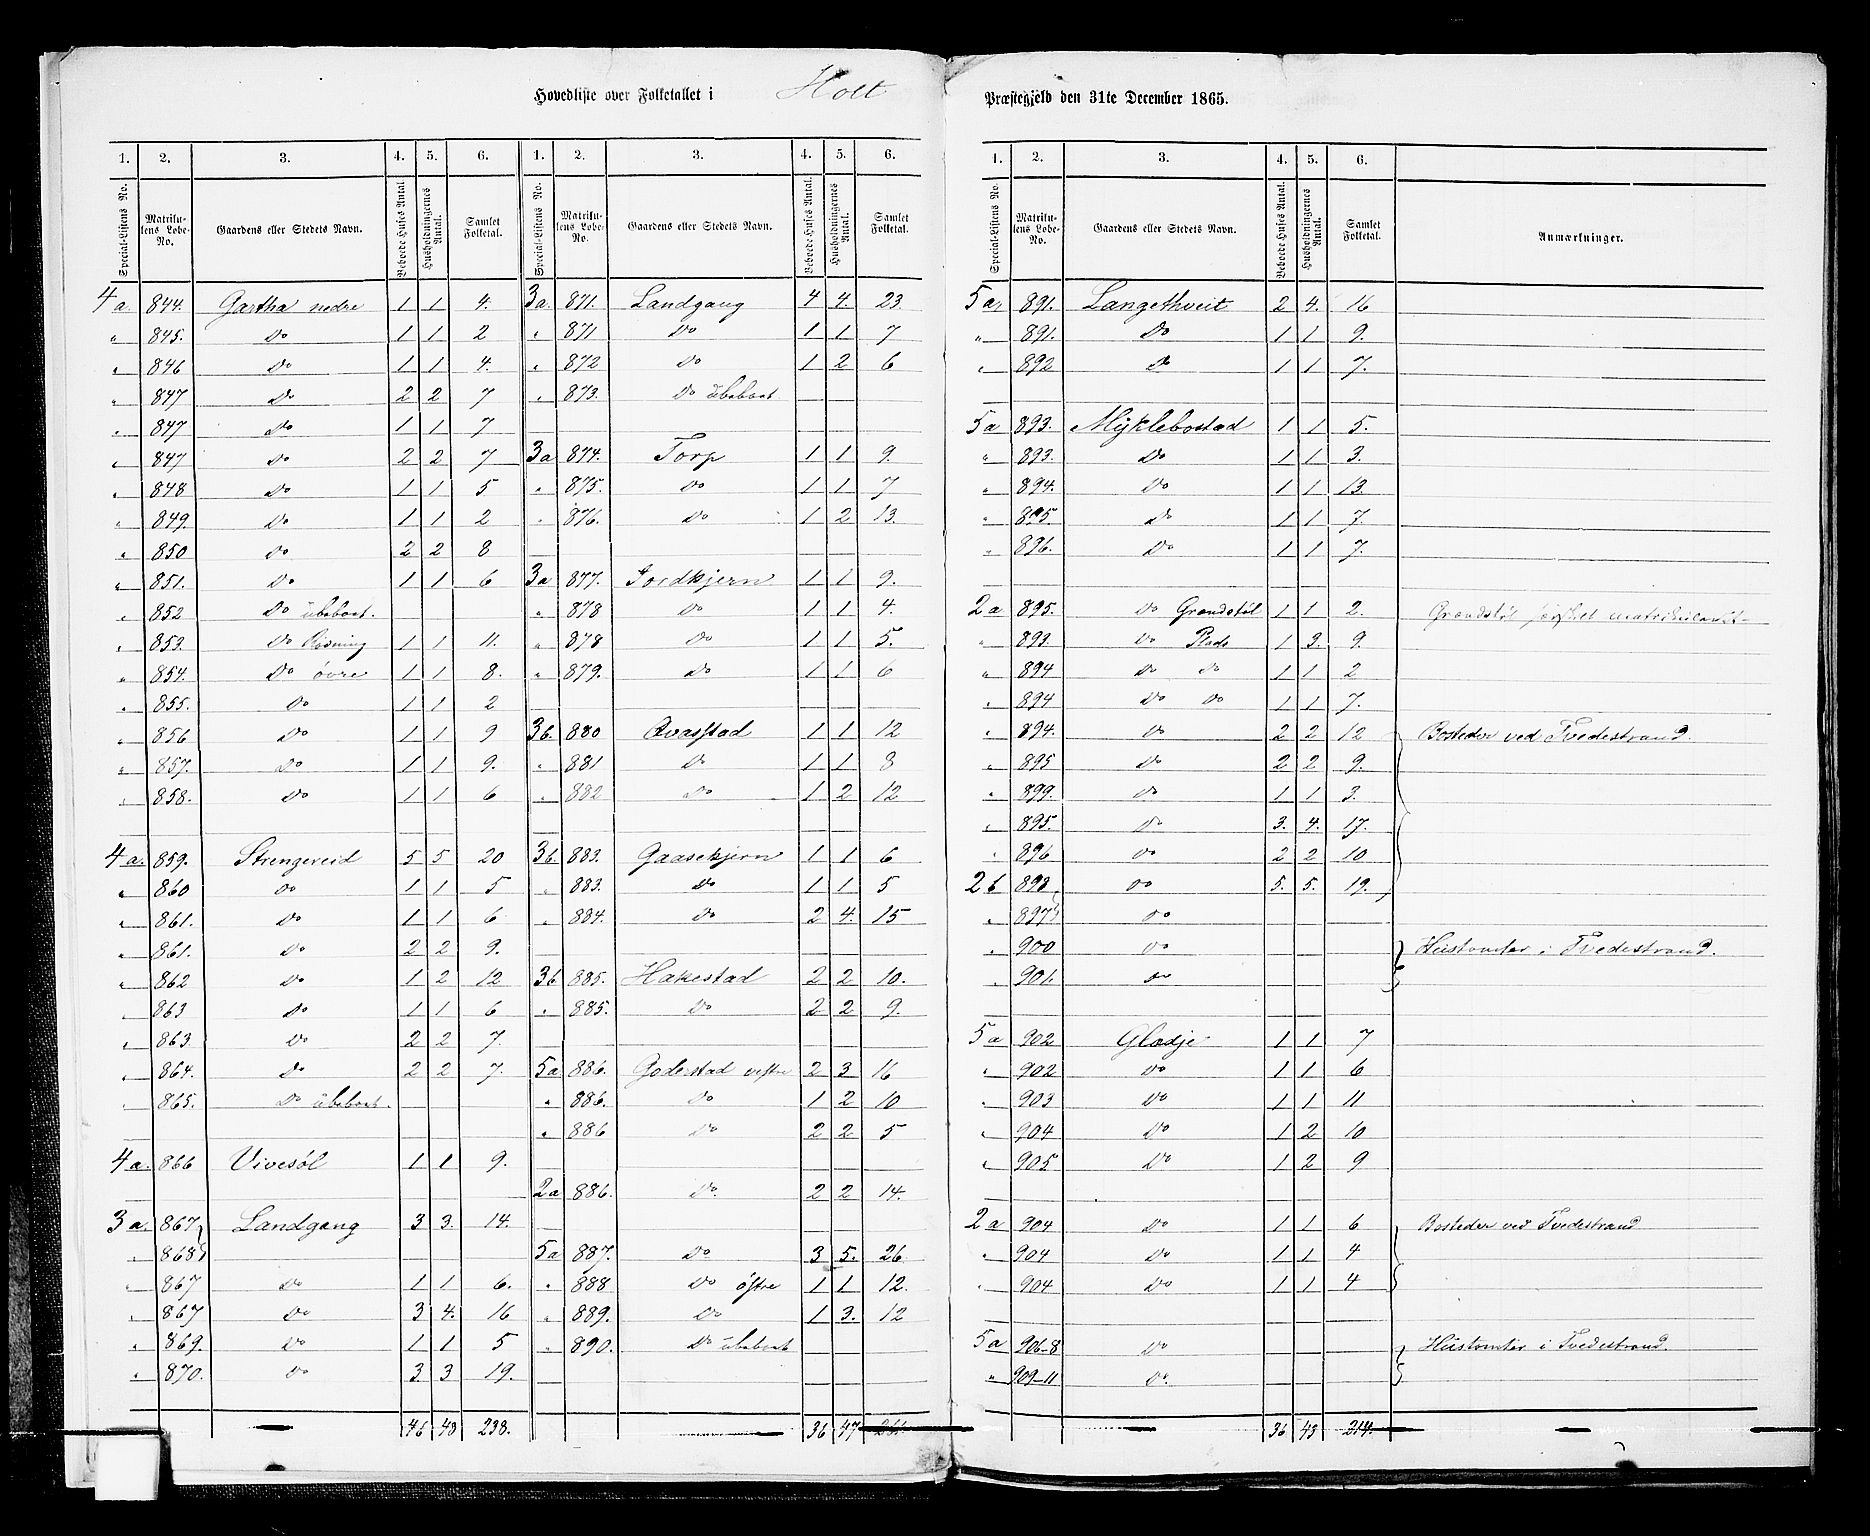 Hovedliste over Folketallet i Holt Præstegjeld den 31te December 1865.
1. 2. 3. 4. 5. 6.
Special-Listens No. Matrikulens Løbe-No. Gaardens eller Stedets Navn. Beboede Huses Antal. Husholdningernes Antal. Samlet Folketal.
4a. 844. Gartha nedre 1 1 4.
" 845. Do 1 1 2
" 846 Do 1 1 4.
" 847 Do 2 2 7
" 847 Do 1 1 7
" 847 Do 2 2 7
" 848 Do 1 1 5
" 849. Do 1 1 2
" 850 Do 2 2 8
" 851. Do 1 1 6
" 852 Do übeboet.
" 853. Do Rødning 1 1 11.
" 854. Do øvre 1 1 8.
" 855. Do 1 1 2
" 856 Do 1 1 9
" 857. Do 1 1 9.
" 858. Do 1 1 6
4a. 859. Strengereid 5 5 20
" 860 Do 1 1 5
" 861. Do 1 1 6
" 861. Do 2 2 9.
" 862 Do 1 2 12
" 863 Do 1 1 6
" 863 Do 2 2 7.
" 864. Do 2 2 7.
" 865. Do übeboet.
4a. 866 Vivesøl 1 1 9.
3a. 867 Landgang 3 3. 14.
" 868
" 867 Do 1 1 6.
" 867 Do 3 4. 16
" 869. Do 1 1 5
" 870. Do 3 3 19.
46 48 238.
1. 2. 3. 4. 5. 6.
Special-Listens No. Matrikulens Løbe-No. Gaardens eller Stedets Navn. Beboede Huses Antal. Husholdningernes Antal. Samlet Folketal.
3a. 871. Landgang 4 4. 23
" 871 Do 1 1 7
" 872 Do 1 2 6
" 873. Do übeboet
3a 874. Torp 1 1 9.
" 875. Do 1 1 7
" 876. Do 1 2 13.
3a 877. Jordkjern 1 1 9.
" 878 Do 1 1 4.
" 878 Do 1 1 5.
" 879. Do 1 1 6
3b. 880 Qvasstad 1 1 12
" 881 Do 1 1 8
" 882 Do 1 2 12
3b. 883. Gaasekjern 1 1 6
" 883. Do 1 1 5
" 884. Do 2 4. 15
3b 885. Hakestad 2 2 10.
" 885. Do 2 2 9.
5a 886. Goderstad vestre 2 3 16
" 886. Do 1 2 10
" 886 Do 2 2 5
2a 886. Do. 2 2 14.
5a 887. Do 3 5. 26
" 888 Do östre 1 1 12.
" 889. Do 1 3. 12
" 890. Do übeboet
36 47 261.
1. 2. 3. 4. 5. 6.
Special-Listens No. Matrikulens Løbe-No. Gaardens eller Stedets Navn. Beboede Huses Antal. Husholdningernes Antal. Samlet Folketal. Anmærkninger.
5a. 891. Langethveit 2 4. 16
" 891. Do 1 1 9.
" 892 Do 1 1 7.
5a 893. Myklebostad 1 1 5.
" 893. Do 1 1 3.
" 894. Do 1 1 13.
" 895. Do 1 1 7.
" 896. Do 1 1 7.
2a 895. Do Grændstøl 1 1 2. Grændstøl særskilt matrikuleret
" 893 Do Plads 1 3. 9.
" 894 Do Do 1 1 2
" 894 Do Do 1 1 7.
" 894. Do 2 2 12 Bosteder ved Tvedestrand.
" 895 Do 2 2 9.
" 899. Do 1 1 3.
" 895. Do 3. 4. 17.
" 896 Do 2 2 10
2b 898 Do 5. 5. 19.
" 897 Do
" 900 Do Hustomter i Tvedestrand.
" 901. Do
5a 902 Glødje 1 1 7
" 902 Do 1 1 6
" 903 Do 1 1 11
" 904 Do 1 2 10
" 905 Do 1 2 9
2a 904 Do 1 1 6 Bosteder ved Tvedestrand
" 904 Do 1 1 4
" 904 Do 1 1 4
5a 906-8 Do Hustomter i Tvedestrand.
" 909-11 Do.
36 43 214.